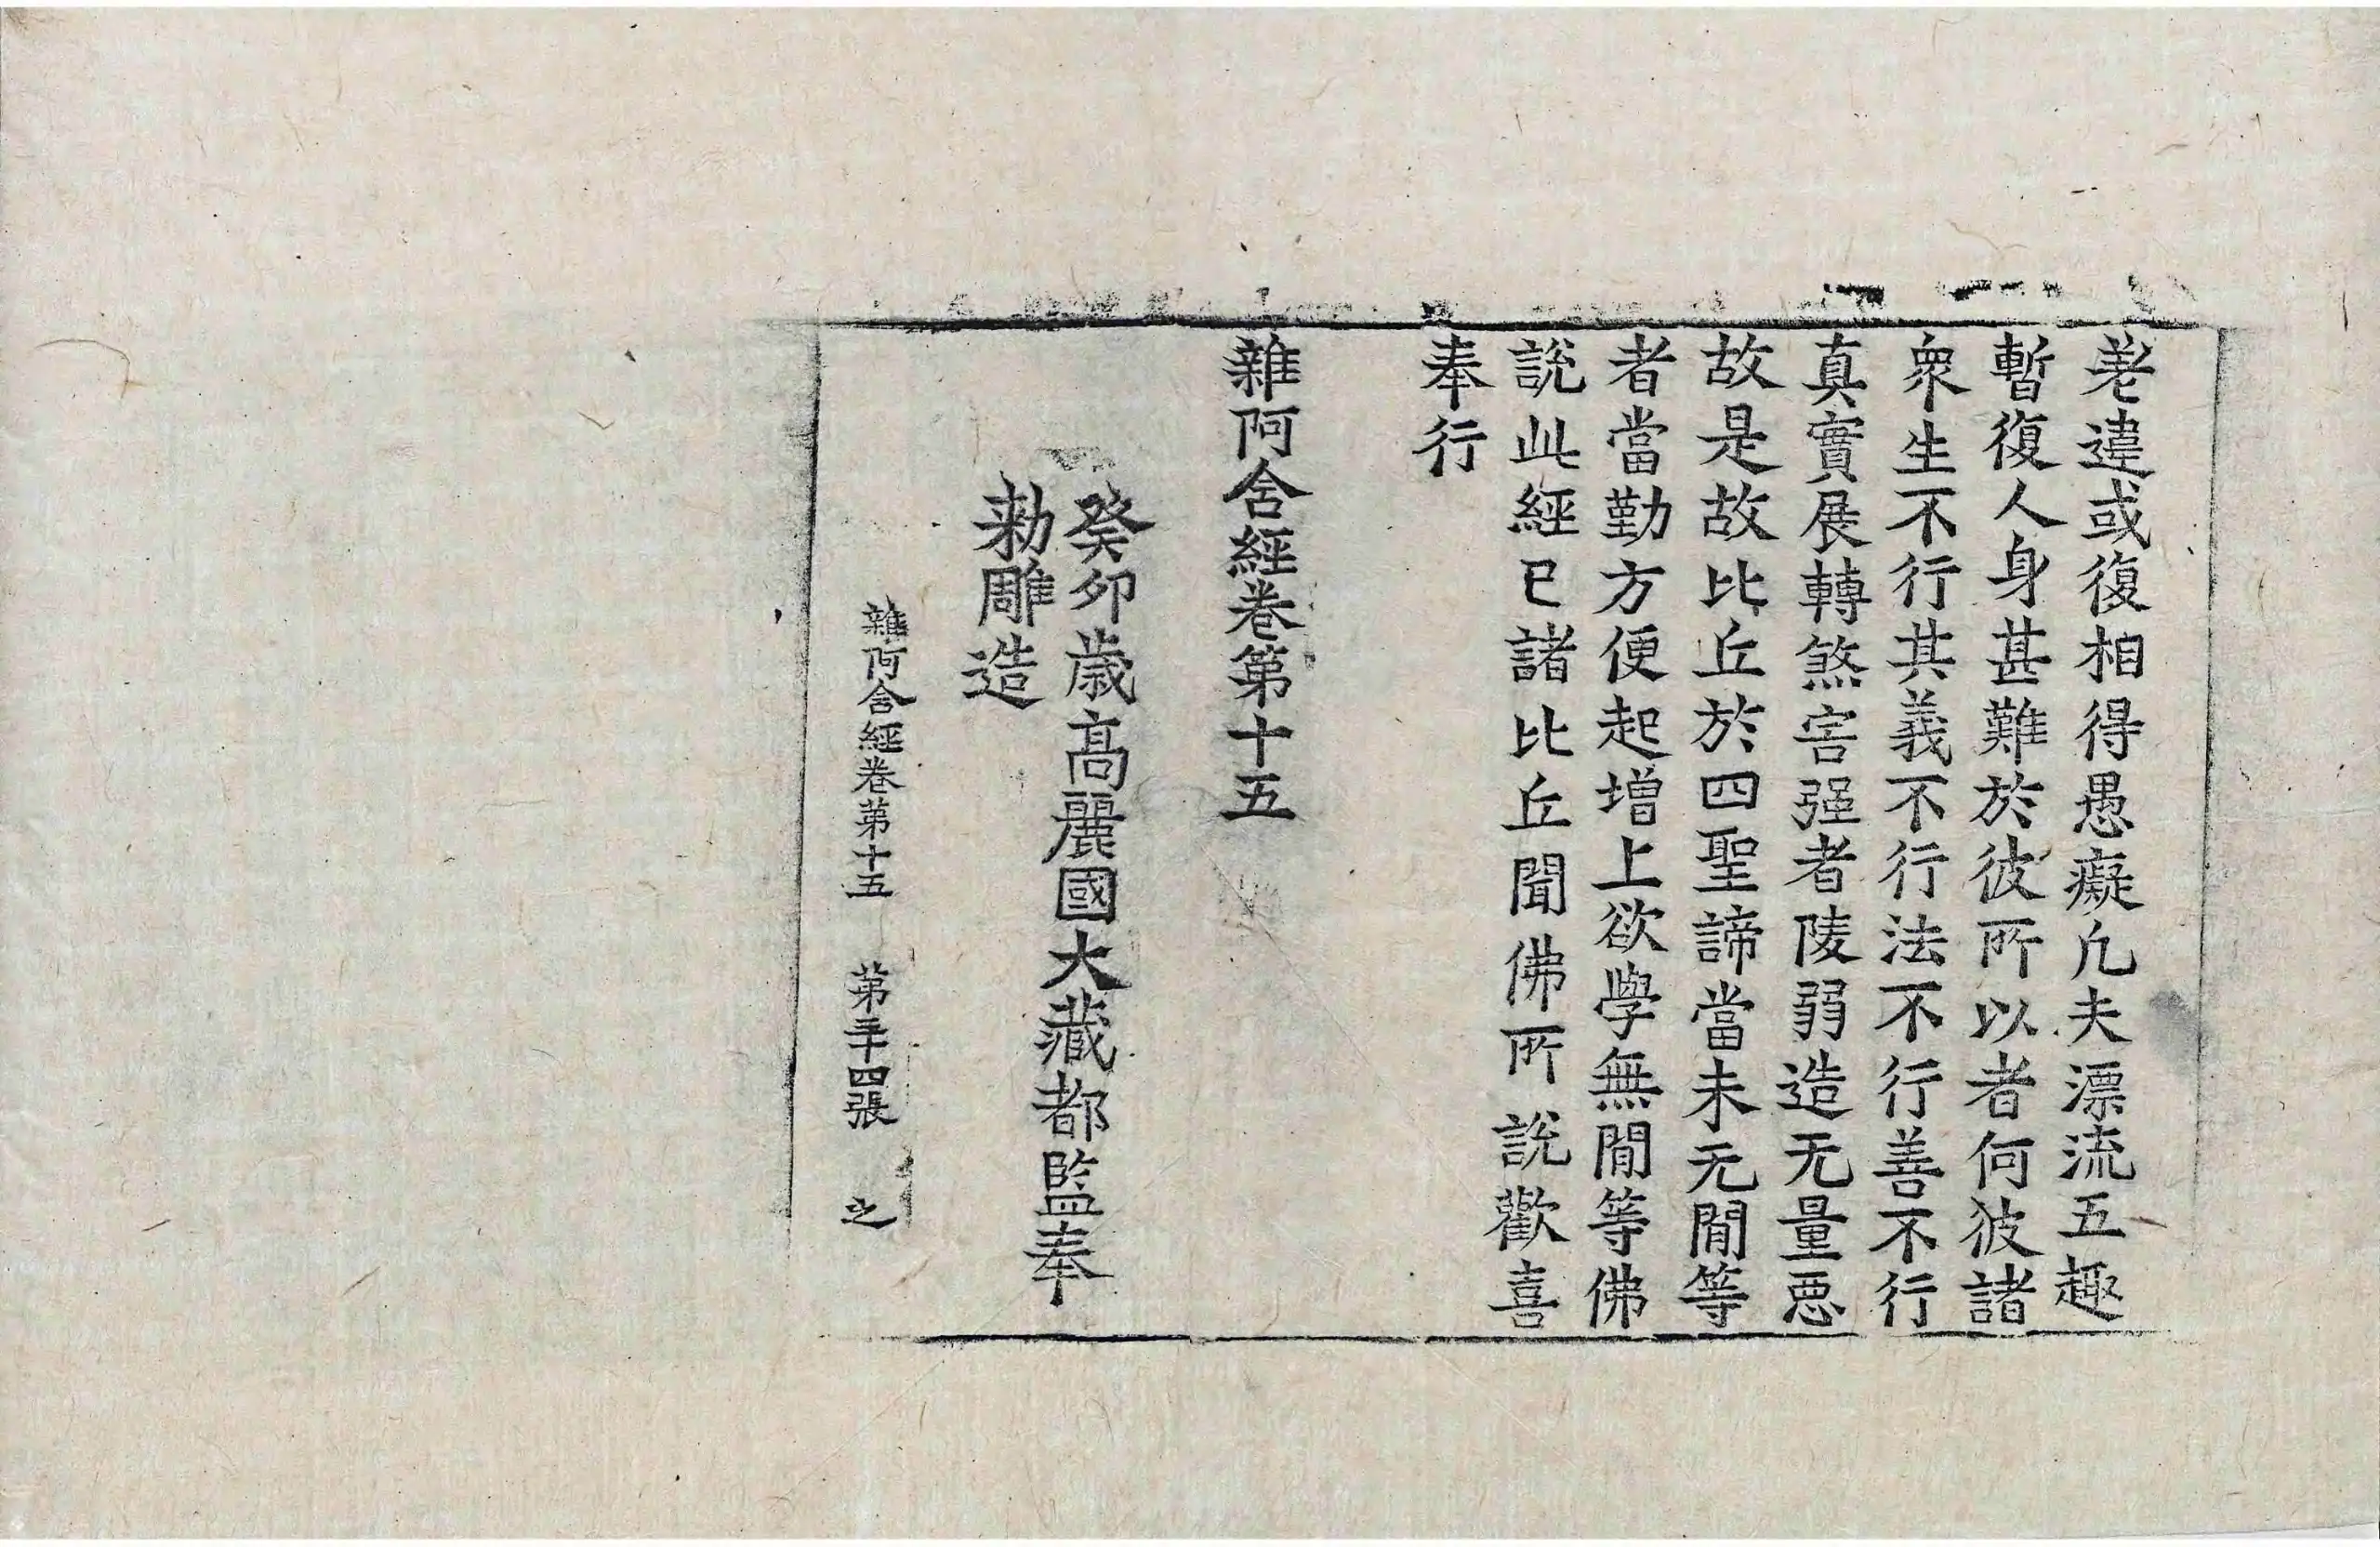 差違或復相得愚癡凡夫漂流五趣
暫復人身甚難於彼所以者何彼諸
衆生不行其義不行法不行善不行
真實展轉煞害强者陵弱造无量惡
故是故比丘於四聖諦當未无閒等
者當勤方便起增上欲學無閒等佛
說此經已諸比丘聞佛所說歡喜
奉行
雜阿含經卷第十五
癸卯歲高麗國大藏都監奉
勅雕造
雜阿含經卷第十五 第二十四張 之